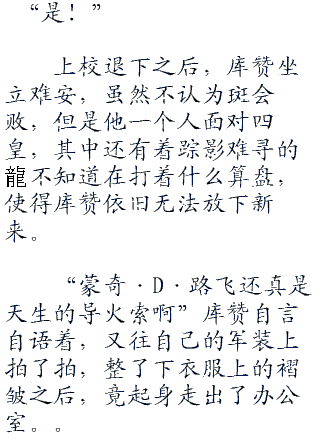 “是！”
上校退下之后，库赞坐
立难安，虽然不认为斑会
败，但是他一个人面对四
皇，其中还有着踪影难寻的
龍不知道在打着什么算盘，
使得库赞依旧无法放下新
来。
“蒙奇·D·路飞还真是
天生的导火索啊”库赞自言
自语着，又往自己的军装上
拍了拍，整了下衣服上的褶
皱之后，竟起身走出了办公
室。。